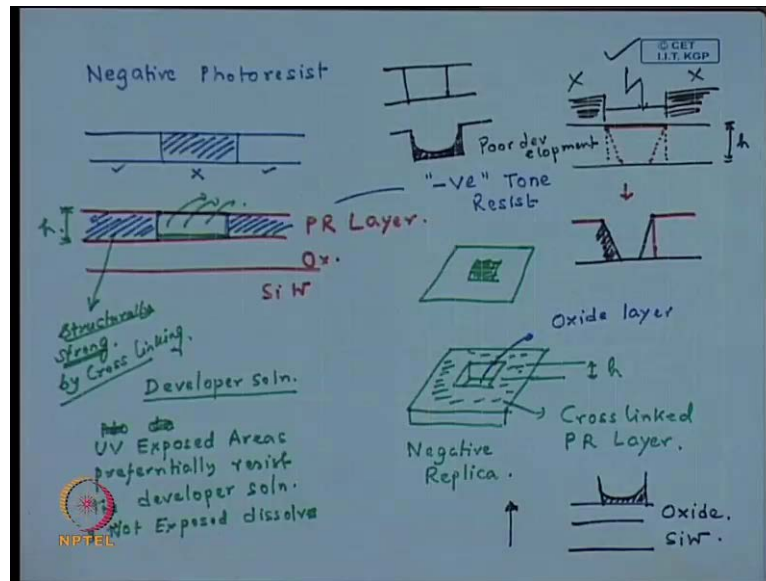 Negative Photoresist
© CET
I.I.T. KGP
✓ X ✓
X X
h
PR Layer.
Ox.
Si W
Structurally
strong.
by Cross linking.
Developer soln.
UV Exposed Areas
preferntially resist
developer soln.
Not Exposed dissolve
NPTEL
Poor dev
elopment
"-ve" Tone
Resist
h
Oxide layer
h
Cross linked
PR Layer.
Negative
Replica.
Oxide.
SiW.